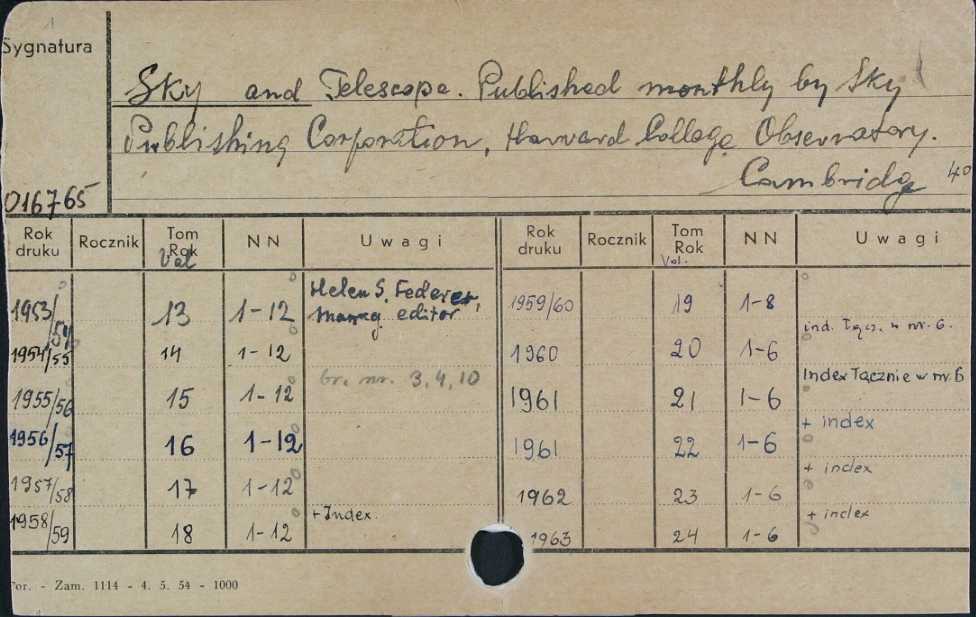 Sygnatura
Sky and Telescope. Published monthly by Sky
Publishing Corporation, Harvard College Observatory.
Cambridge 40
016765
Rok druku Rocznik Tom Rok Vol NN Uwagi Rok druku Rocznik Tom Rok Vol. NN Uwagi
1953/54 13 1-12 Helen S. Federer, manag. editor 1959/60 19 1-8
ind. łącz. w nr. 6.
1954/55 14 1-12 1960 20 1-6
br. nr. 3, 4, 10 Index łącznie w nr. 6
1955/56 15 1-12 1961 21 1-6
+ index
1956/57 16 1-12 1961 22 1-6
+ index
1957/58 17 1-12 1962 23 1-6
+ Index. + index
1958/59 18 1-12 1963 24 1-6
For. - Zam. 1114 - 4. 5. 54 - 1000